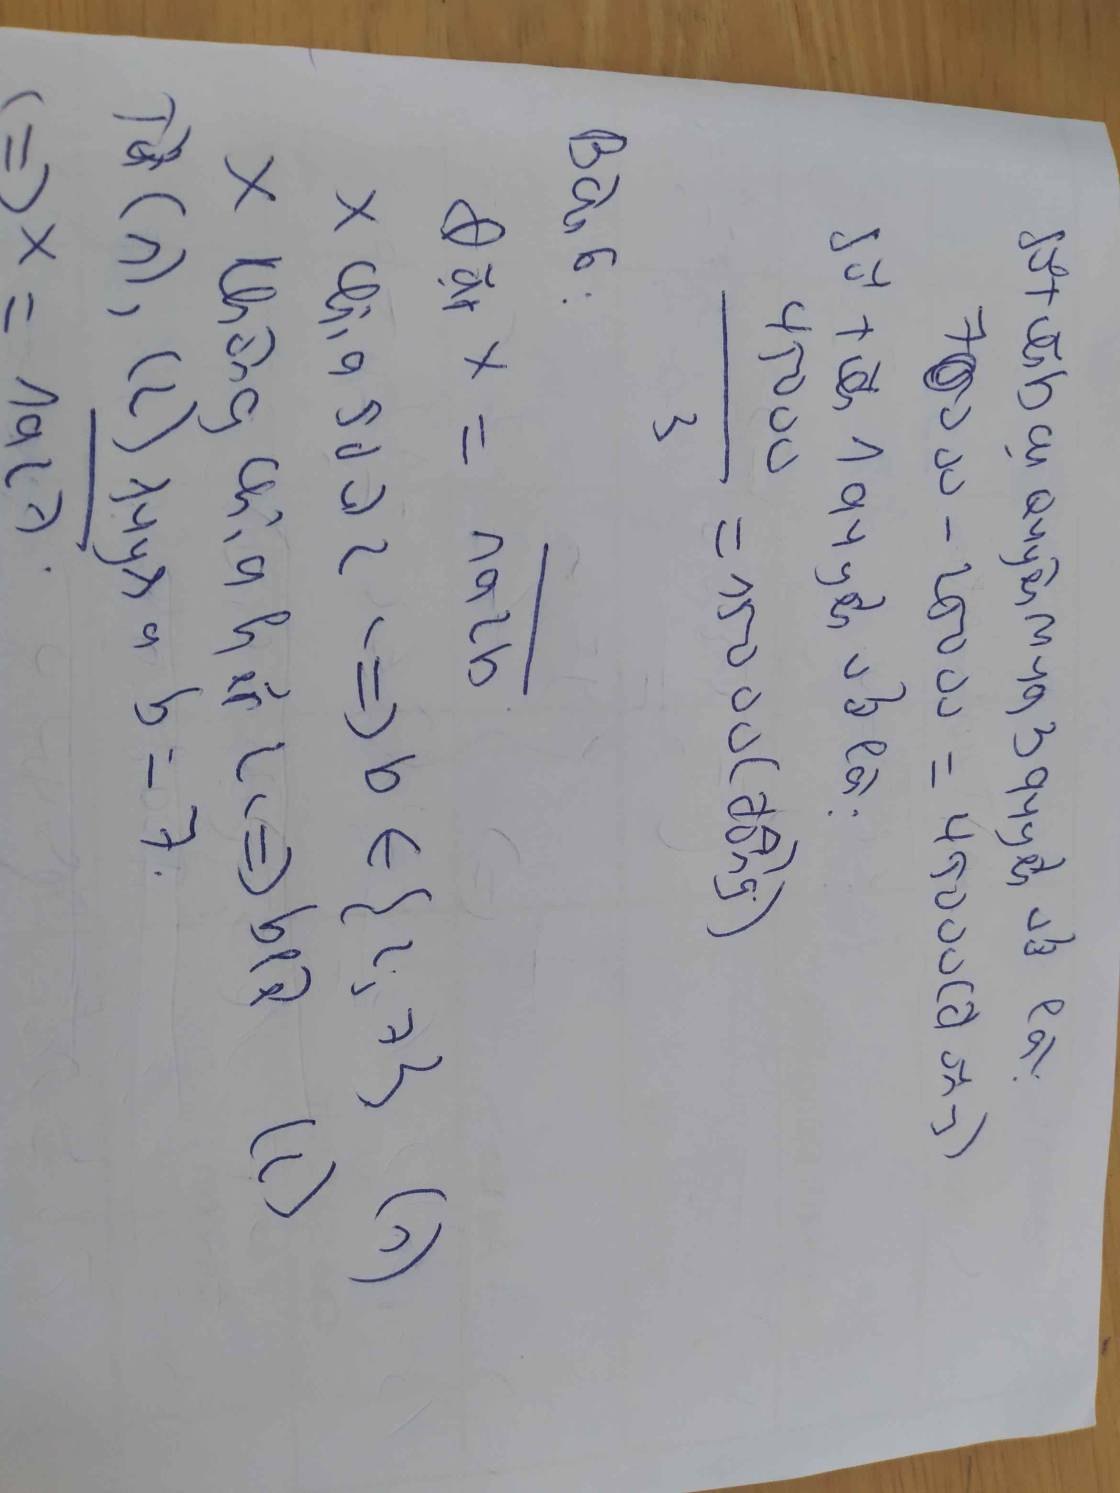 Số tiền b mua quyển và 3 quyển vở là:
70000 - 25000 = 45000 (đồng)
Số tiền 1 quyển vở là:
45000 / 3 = 15000 (đồng)
Bài 6:
Đặt x = 1a2b
x chia 5 dư 2 <=> b ∈ {2; 7} (1)
x không chia hết 2 <=> b lẻ (2)
Từ (1), (2) suy ra b = 7.
(=> x = 1a27.